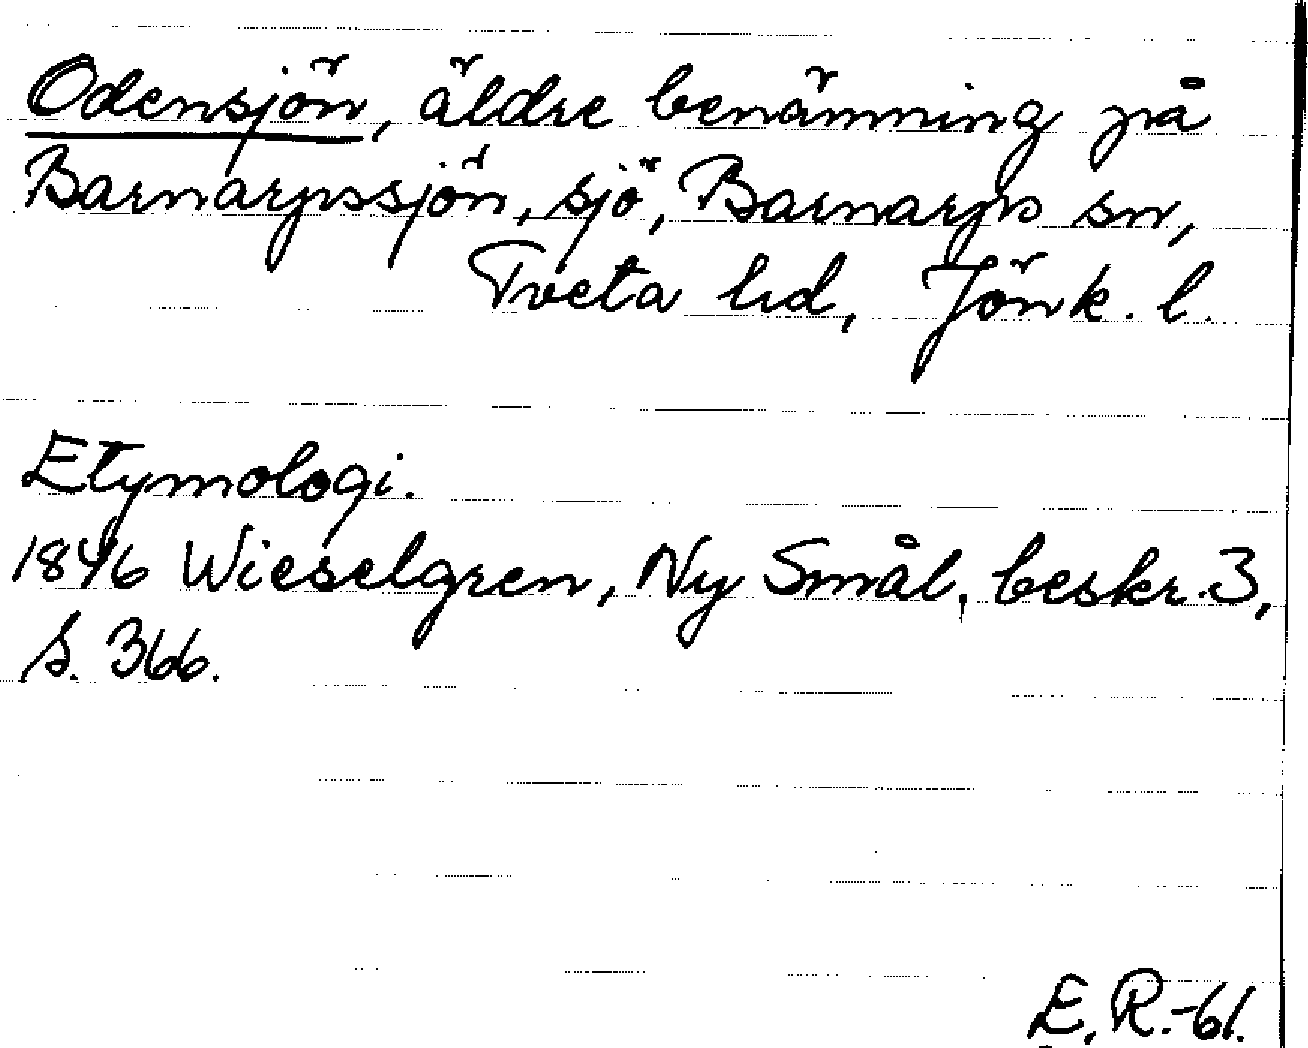 Odensjön, äldre benämning på
Barnarpssjön, sjö, Barnarps sn,
Tveta hd, Jönk. l.
Etymologi.
1846 Wieselgren, Ny Smål. beskr. 3,
s. 366.
E. R.-61.